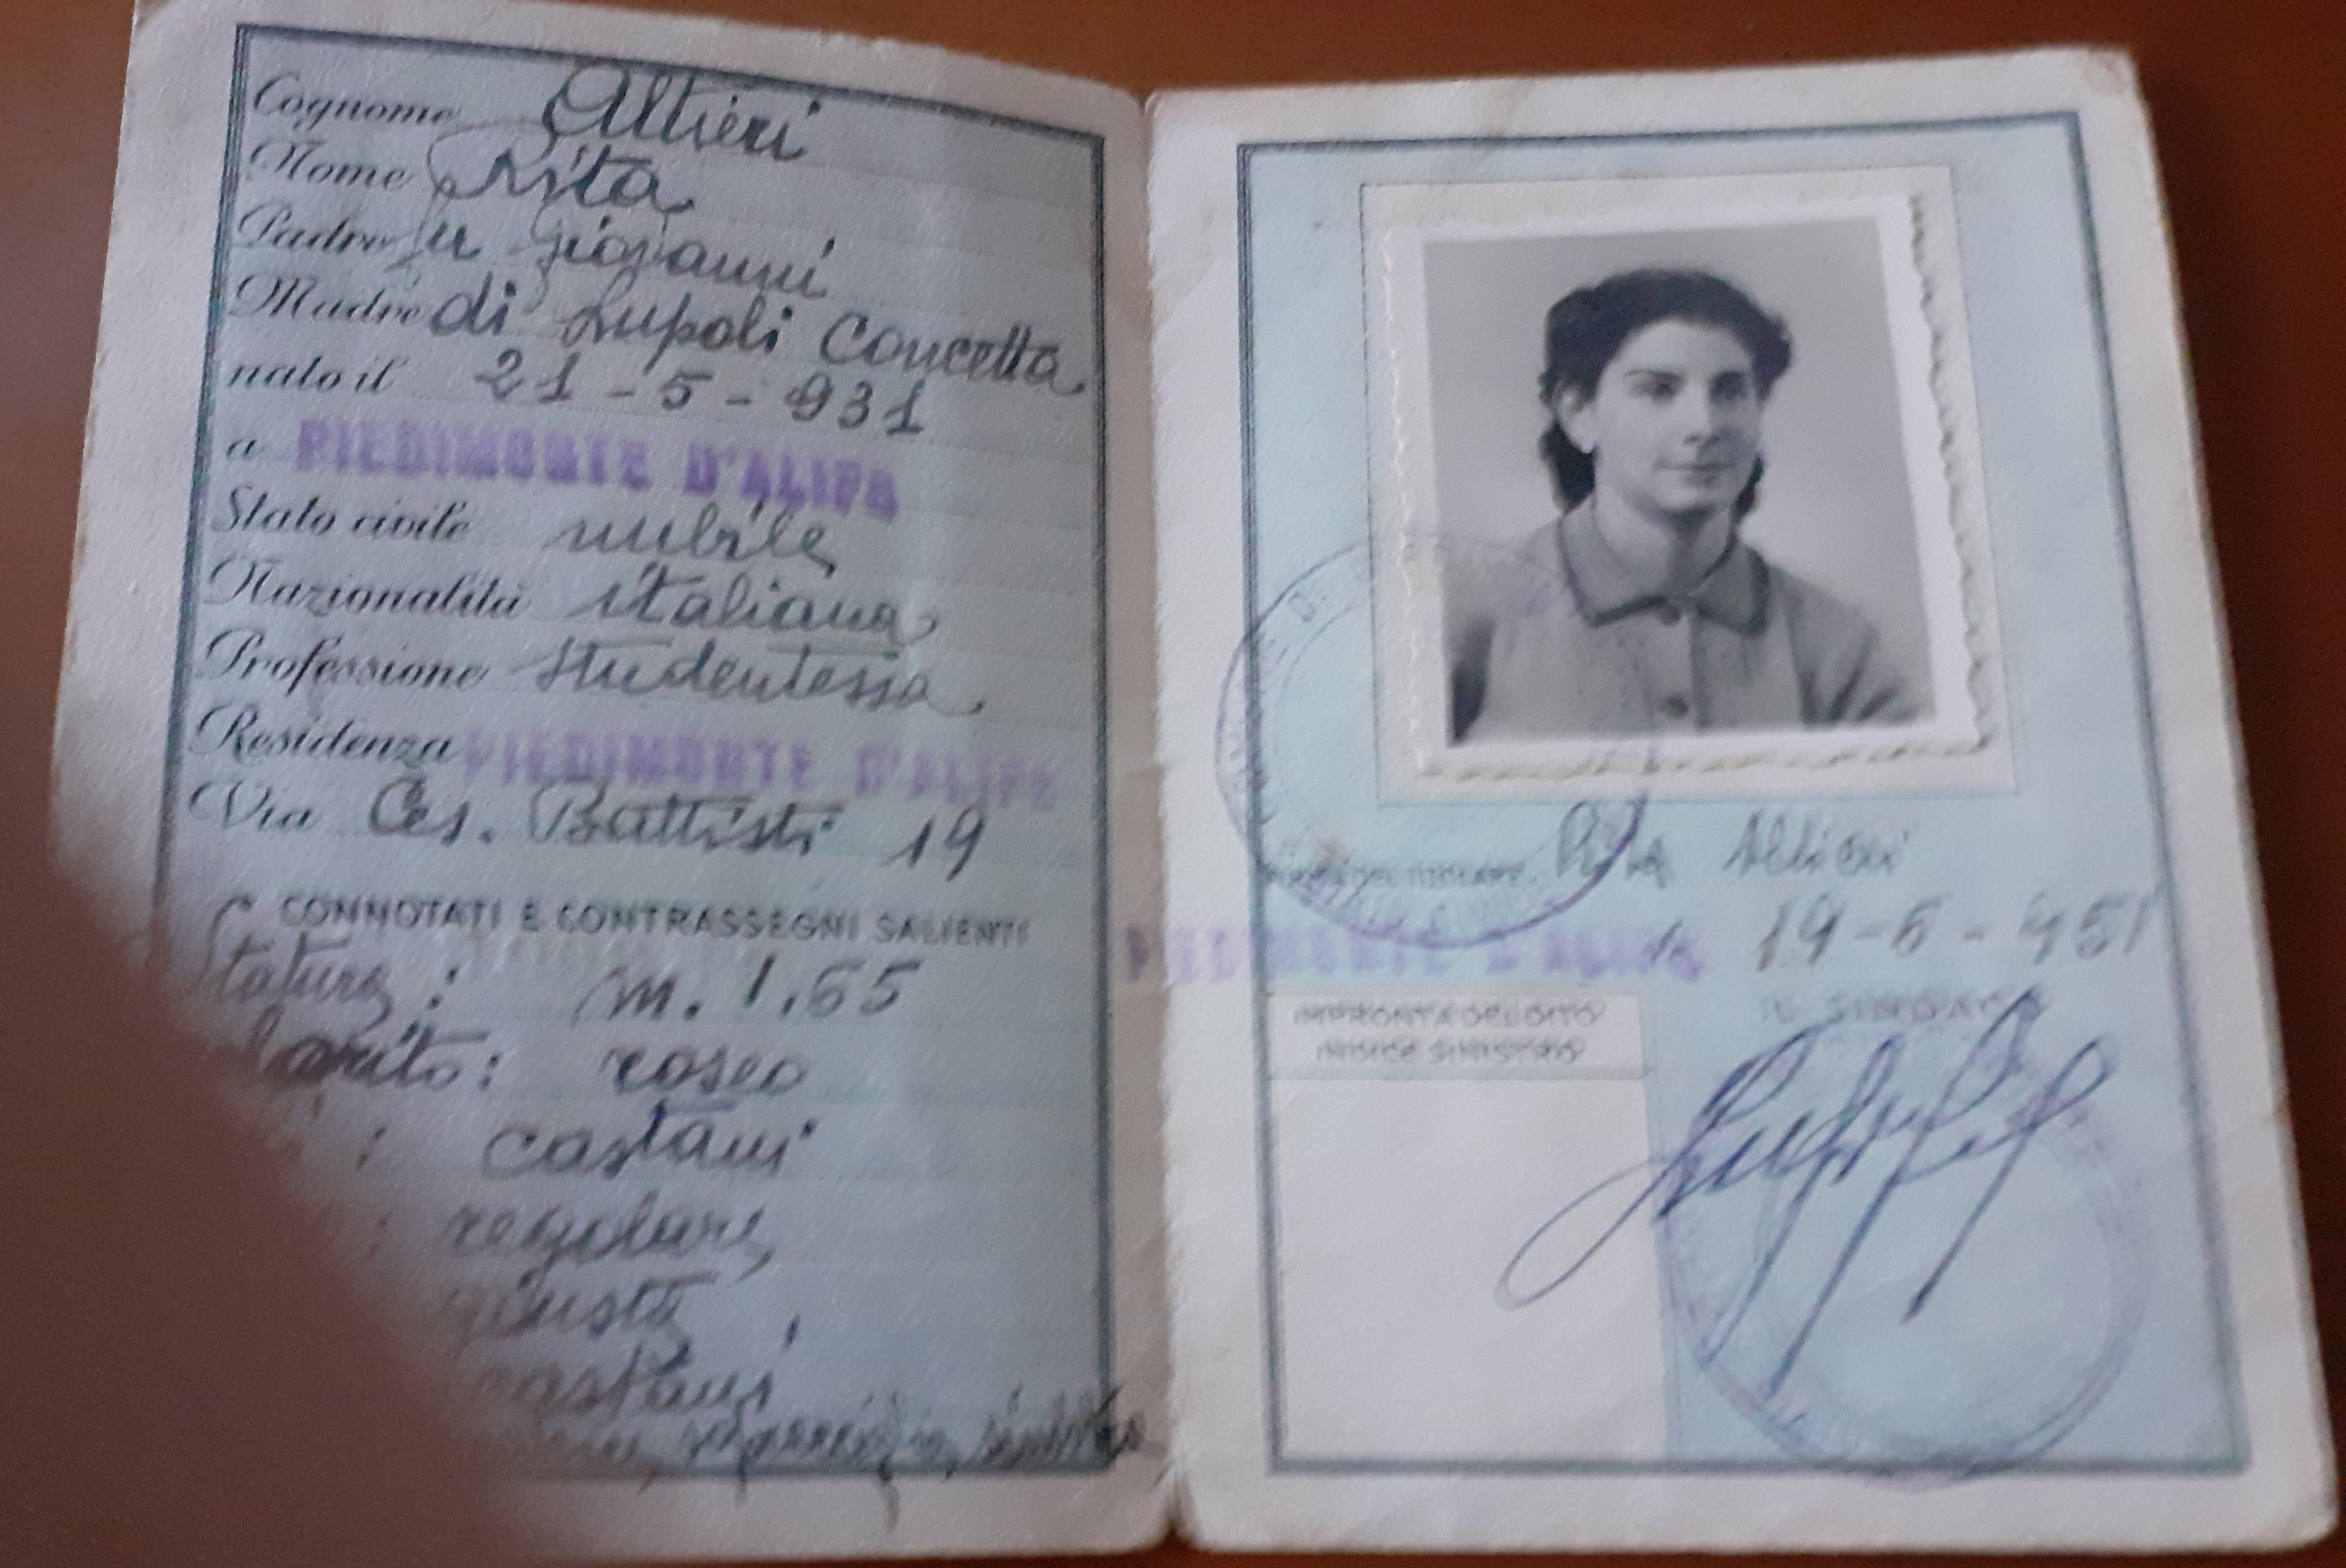 Cognome Altieri
Nome Rita
Padre fu Giovanni
Madre di Lupoli Concetta
nato il 21-5-931
a PIEDIMONTE D'ALIFE
Stato civile nubile
Nazionalità italiana
Professione studentessa
Residenza PIEDIMONTE D'ALIFE
Via Ces. Battisti 19
CONNOTATI E CONTRASSEGNI SALIENTI
Statura: m. 1,65
roseo
: castani
: regolare
giusta
castani
FIRMA DEL TITOLARE Rita Altieri
PIEDIMONTE D'ALIFE 19-5-951
IMPRONTA DEL DITO
INDICE SINISTRO
IL SINDACO